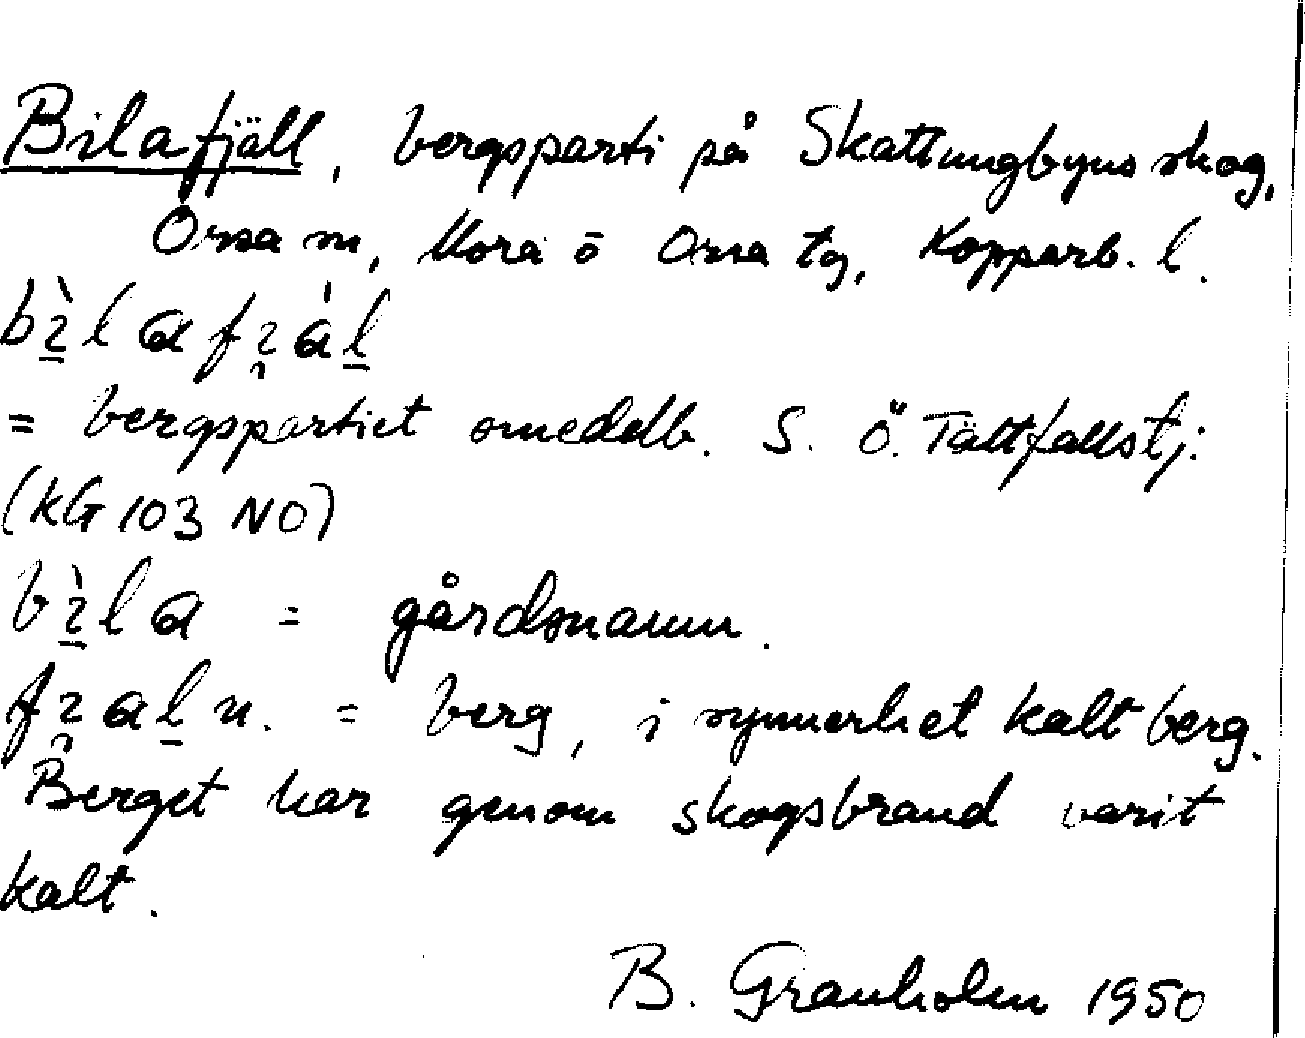 Bilafjäll, bergsparti på Skattungbyns skog,
Orsa sn, Mora o Orsa tg, Kopparb. l.
= bergspartiet omedelb. S. Ö. Tättfallstj:
(KG 103 NO)
= gårdsnamn.
n. = berg, i synnerhet kalt berg.
Berget har genom skogsbrand varit
kalt.
B. Granholm 1950